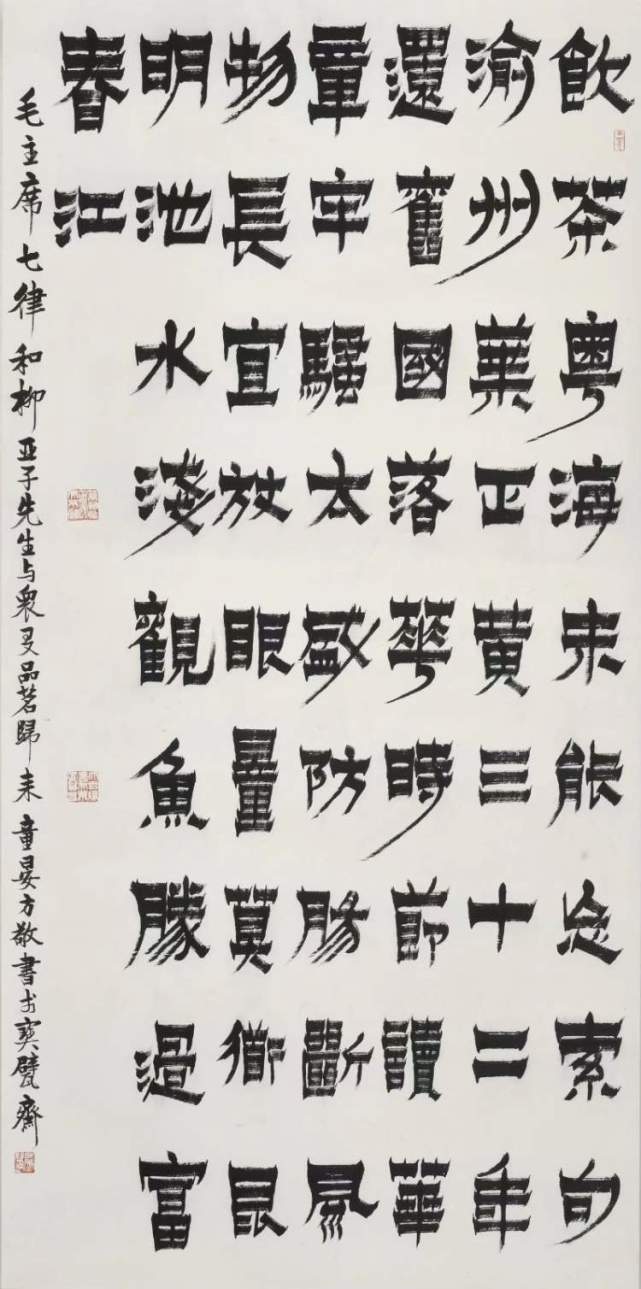 飲茶粤海未能忘索句
渝州葉正黄三十二年
還舊國落華時節讀華
章牢騷太盛防腸斷風
物長宜放眼量莫衜昆
明池水淺觀魚勝過富
春江
毛主席七律和柳亚子先生与衆友品茗歸来 童晏方敬書於寶甓齋